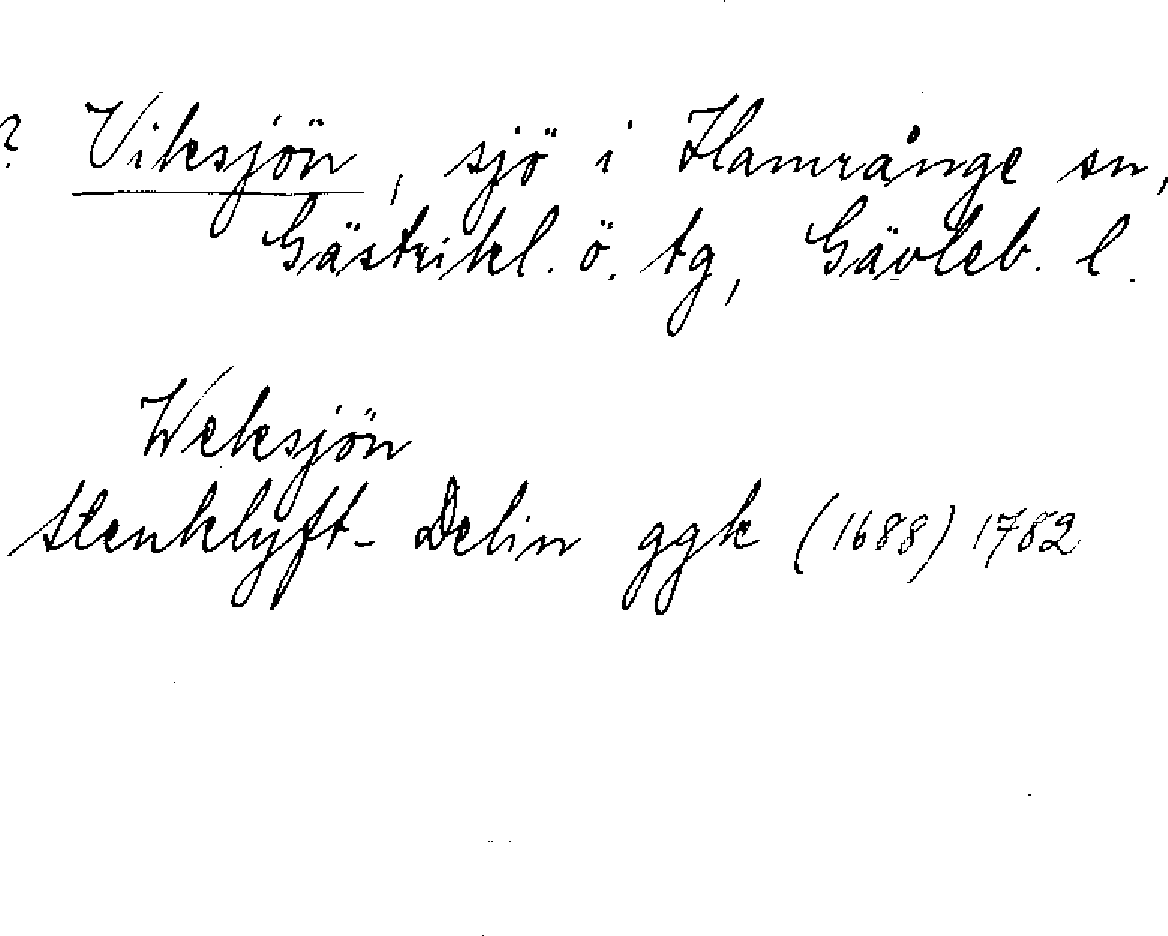 ? Viksjön, sjö i Hamrånge sn,
Gästrikl. ö. tg, Gävleb. l.
Weksjön
Stenklyft- Delin ggk (1688) 1782